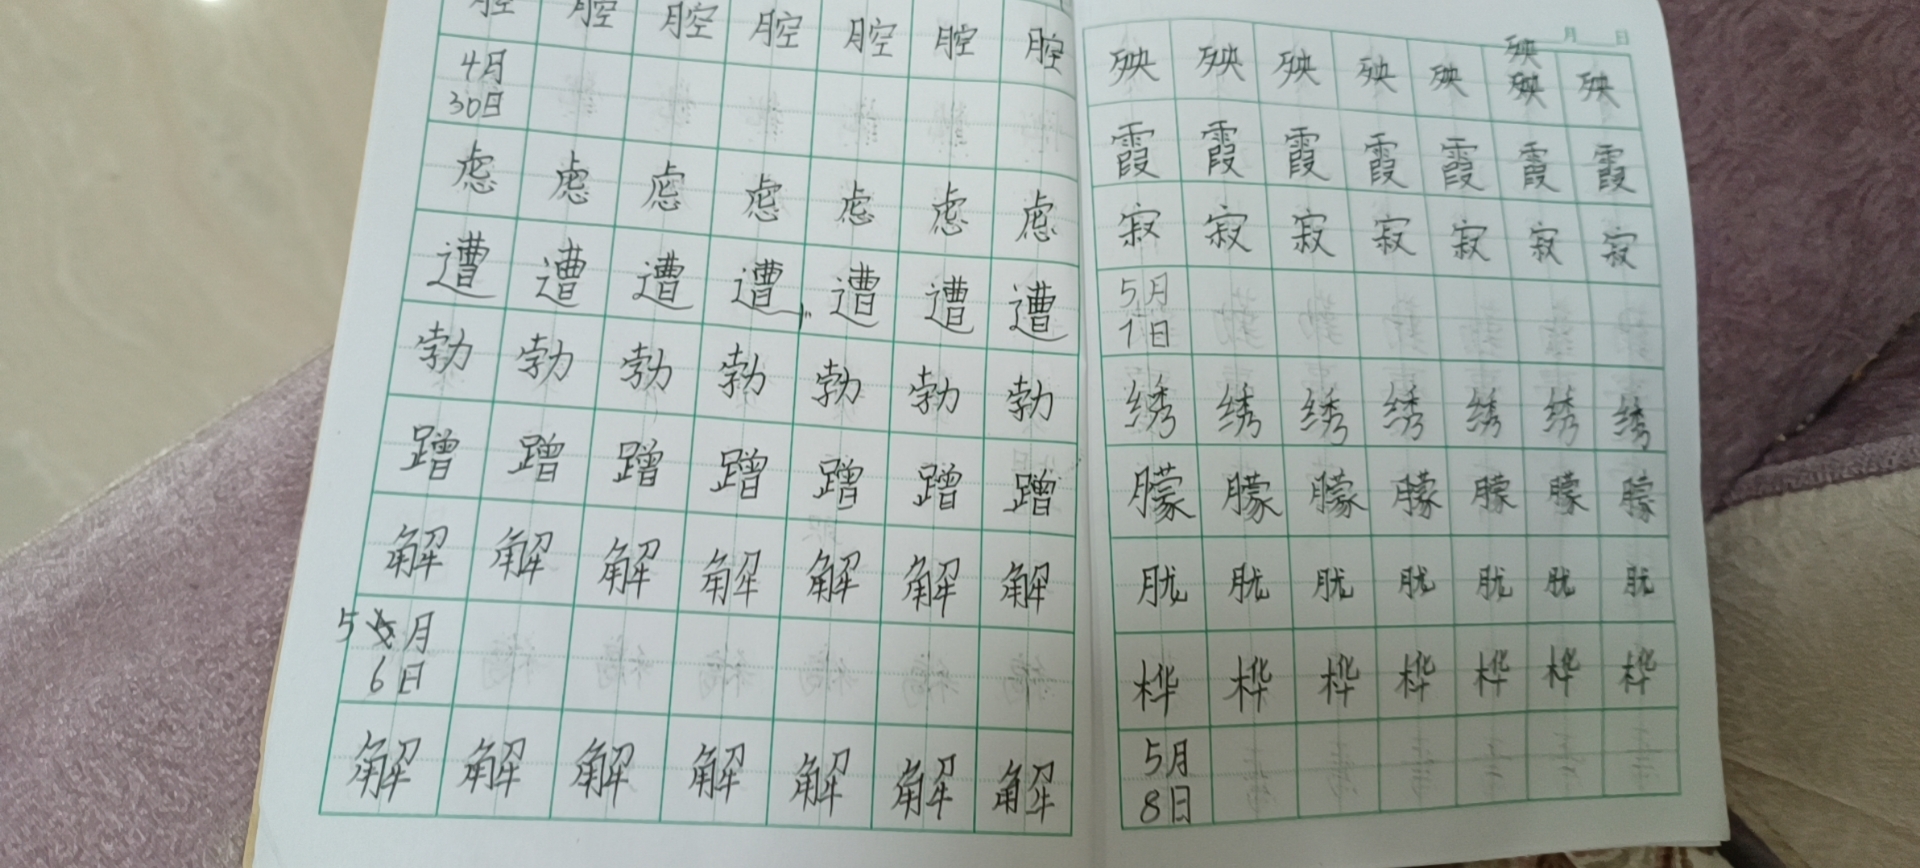 腔 腔 腔 腔 腔 腔 腔
4月
30日
虑 虑 虑 虑 虑 虑 虑
遭 遭 遭 遭 遭 遭 遭
勃 勃 勃 勃 勃 勃 勃
蹭 蹭 蹭 蹭 蹭 蹭 蹭
解 解 解 解 解 解 解
5月
6日
解 解 解 解 解 解 解
月 日
殃
殃 殃 殃 殃 殃 殃 殃
霞 霞 霞 霞 霞 霞 霞
寂 寂 寂 寂 寂 寂 寂
5月
1日
绣 绣 绣 绣 绣 绣 绣
朦 朦 朦 朦 朦 朦 朦
胧 胧 胧 胧 胧 胧 胧
桦 桦 桦 桦 桦 桦 桦
5月
8日